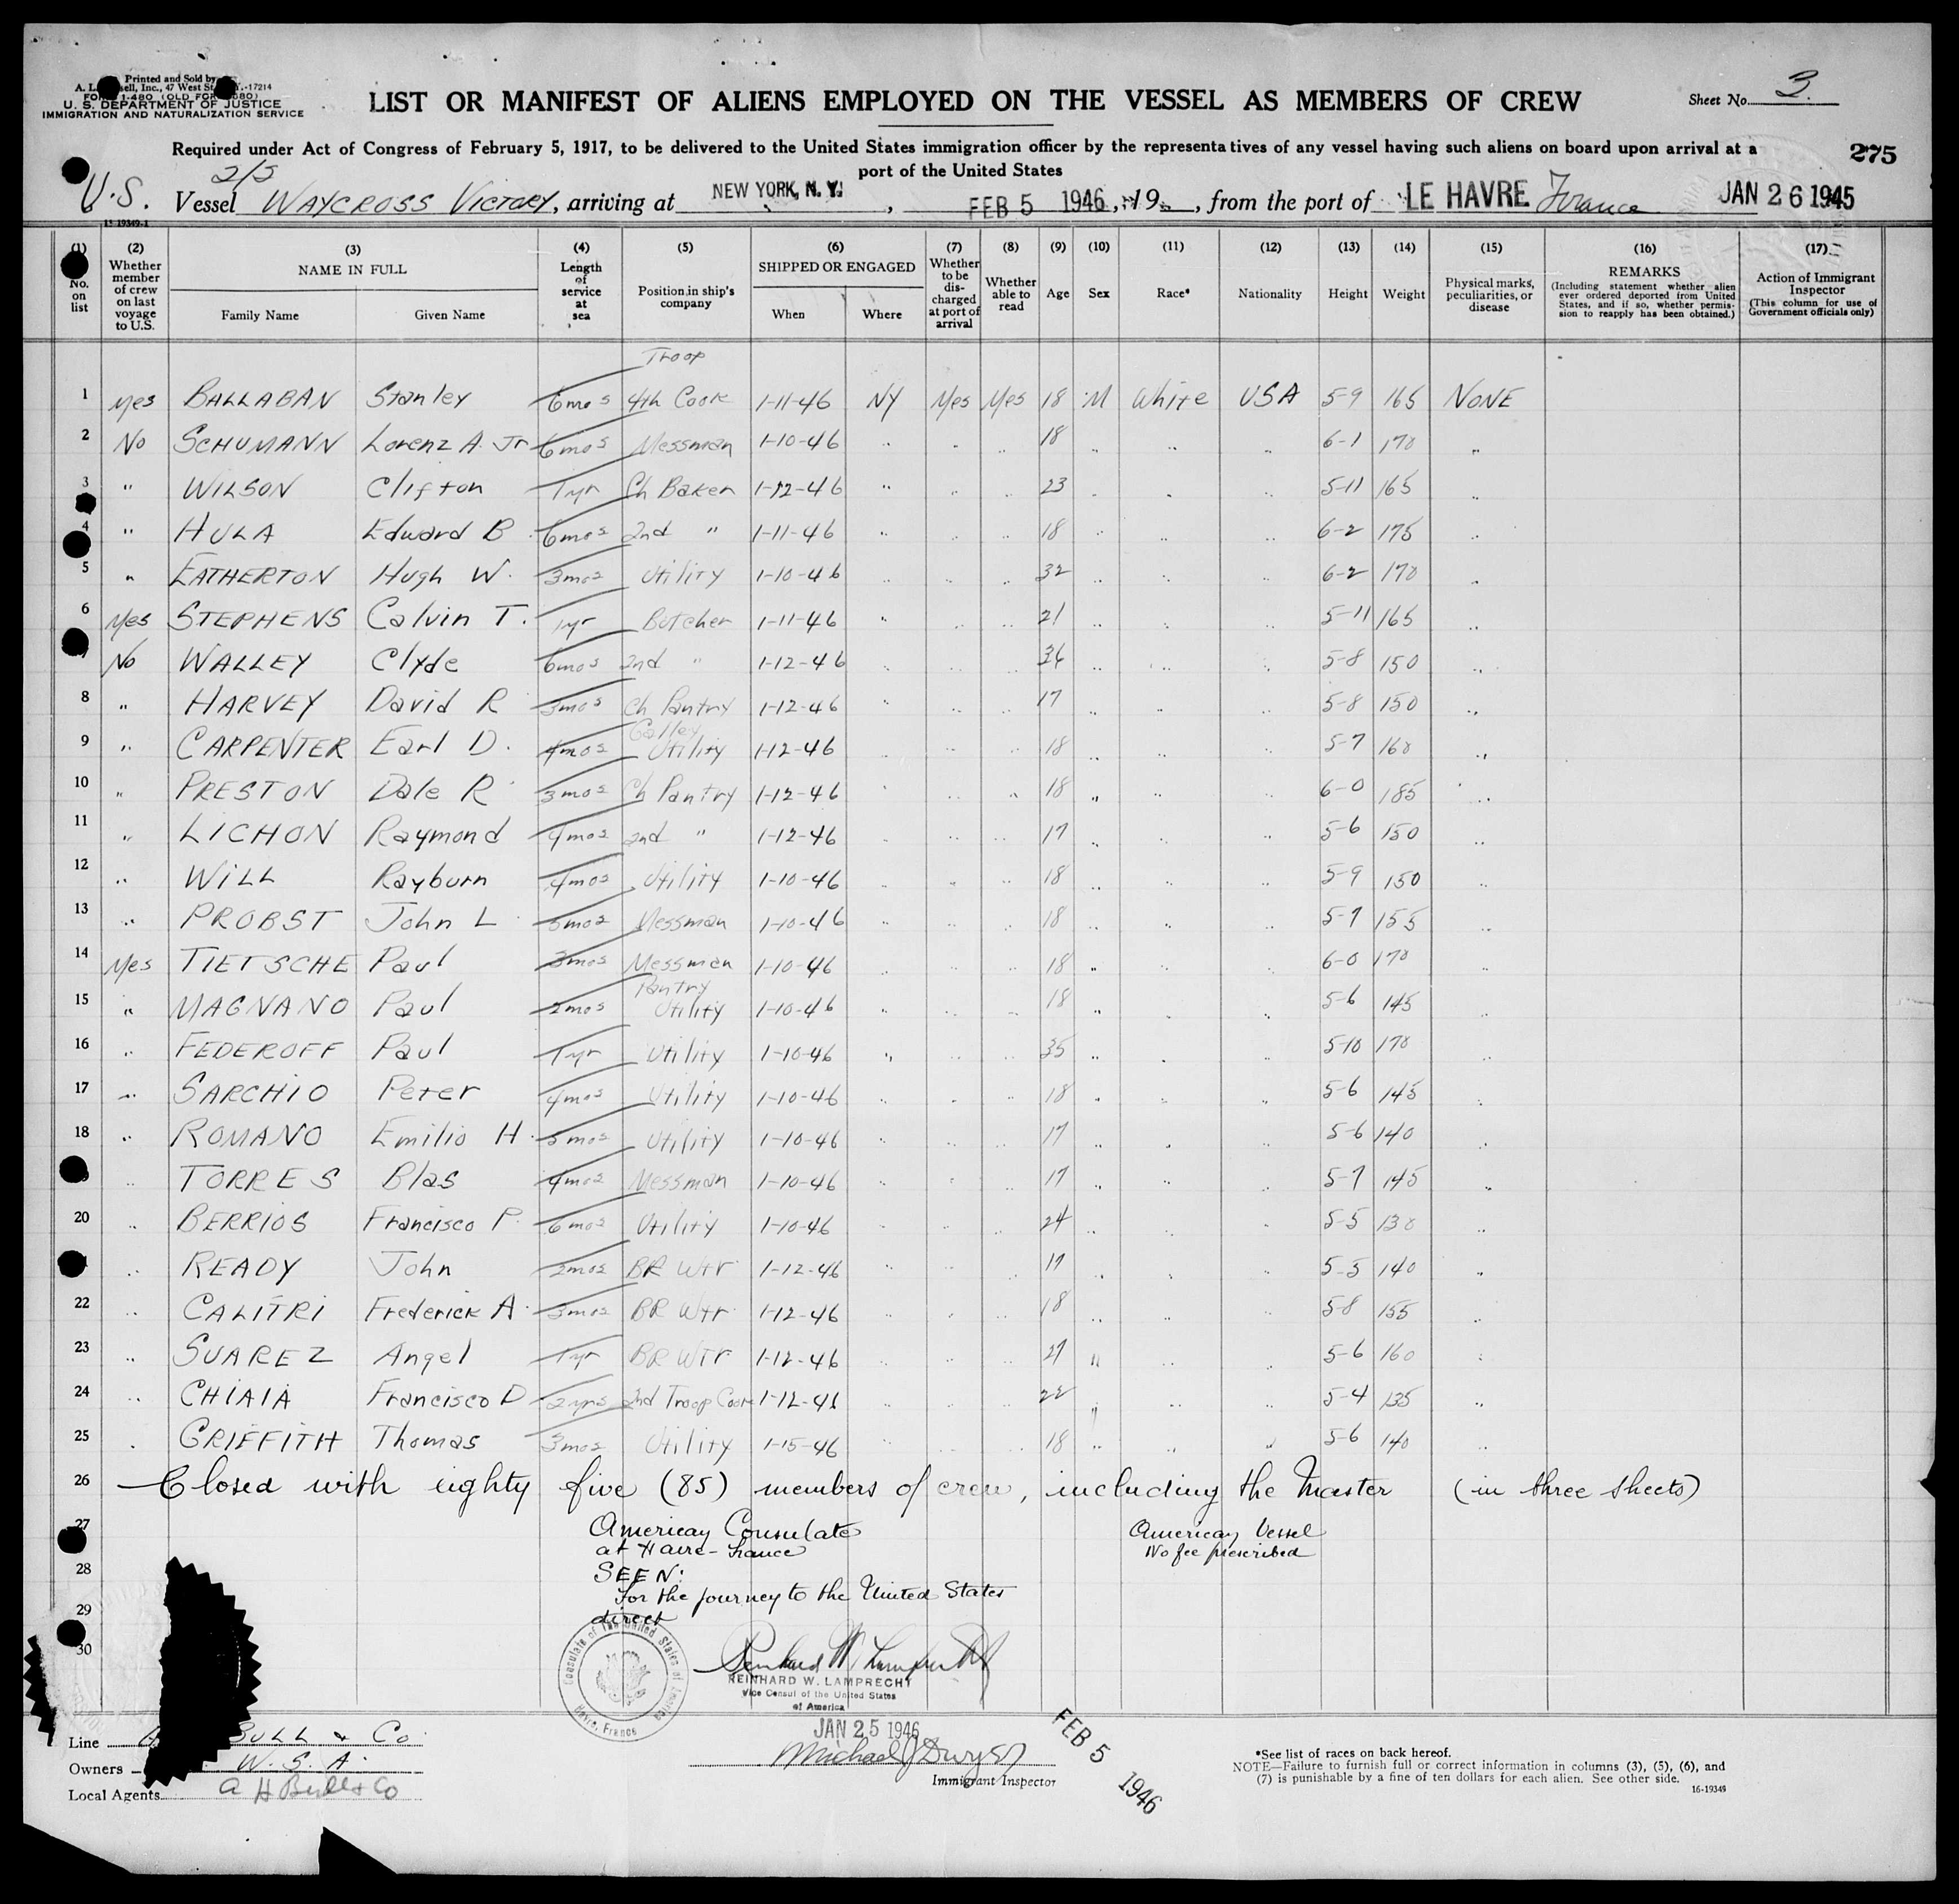 Printed and Sold by
47 West
-17214
1-480 (OLD FOR
U. S. DEPARTMENT OF JUSTICE
IMMIGRATION AND NATURALIZATION SERVICE
LIST OR MANIFEST OF ALIENS EMPLOYED ON THE VESSEL AS MEMBERS OF CREW
Sheet No. 3.
Required under Act of Congress of February 5, 1917, to be delivered to the United States immigration officer by the representatives of any vessel having such aliens on board upon arrival at a
port of the United States
275
2/5
U.S. Vessel WAYCROSS VICTORY, arriving at NEW YORK, N. Y., FEB 5 1946, 19, from the port of LE HAVRE France JAN 26 1945
(1) No. on list
(2) Whether member of crew on last voyage to U.S.
(3) NAME IN FULL Family Name Given Name
(4) Length of service at sea
(5) Position in ship's company
(6) SHIPPED OR ENGAGED When Where
(7) Whether to be discharged at port of arrival
(8) Whether able to read
(9) Age
(10) Sex
(11) Race*
(12) Nationality
(13) Height
(14) Weight
(15) Physical marks, peculiarities, or disease
(16) REMARKS (Including statement whether alien ever ordered deported from United States, and if so, whether permission to reapply has been obtained.)
(17) Action of Immigrant Inspector (This column for use of Government officials only)
Troop
1 Yes BALLABAN Stanley 6mos 4th Cook 1-11-46 NY Yes Yes 18 M White USA 5-9 165 NONE
2 No SCHUMANN Lorenz A. Jr 6mos Messman 1-10-46 " " " 18 " " " 6-1 170 "
3 " WILSON Clifton 1yr Ch Baker 1-12-46 " " " 23 " " " 5-11 165 "
4 " HULA Edward B 6mos 2nd " 1-11-46 " " " 18 " " " 6-2 175 "
5 " EATHERTON Hugh W. 3mos Utility 1-10-46 " " " 32 " " " 6-2 170 "
6 Yes STEPHENS Calvin T. 1yr Butcher 1-11-46 " " " 21 " " " 5-11 165 "
No WALLEY Clyde 6mos 2nd " 1-12-46 " " " 36 " " " 5-8 150 "
8 " HARVEY David R 3mos Ch Pantry 1-12-46 " " " 17 " " " 5-8 150 "
Galley
9 " CARPENTER Earl D. 4mos Utility 1-12-46 " " " 18 " " " 5-7 160 "
10 " PRESTON Dale R 3mos Ch Pantry 1-12-46 " " " 18 " " " 6-0 185 "
11 " LICHON Raymond 4mos 2nd " 1-12-46 " " " 17 " " " 5-6 150 "
12 " WILL Rayburn 4mos Utility 1-10-46 " " " 18 " " " 5-9 150 "
13 " PROBST John L 5mos Messman 1-10-46 " " " 18 " " " 5-7 155 "
14 Yes TIETSCHE Paul 3mos Messman 1-10-46 " " " 18 " " " 6-0 170 "
Pantry
15 " MAGNANO Paul 2mos Utility 1-10-46 " " " 18 " " " 5-6 145 "
16 " FEDEROFF Paul 1yr Utility 1-10-46 " " " 35 " " " 5-10 170 "
17 " SARCHIO Peter 4mos Utility 1-10-46 " " " 18 " " " 5-6 145 "
18 " ROMANO Emilio H. 5mos Utility 1-10-46 " " " 17 " " " 5-6 140 "
" TORRES Blas 4mos Messman 1-10-46 " " " 17 " " " 5-7 145 "
20 " BERRIOS Francisco P. 6mos Utility 1-10-46 " " " 24 " " " 5-5 130 "
" READY John 2mos BR Wtr 1-12-46 " " " 17 " " " 5-5 140 "
22 " CALITRI Frederick A. 3mos BR Wtr 1-12-46 " " " 18 " " " 5-8 155 "
23 " SUAREZ Angel 1yr BR WTr 1-12-46 " " " 27 " " " 5-6 160 "
24 " CHIAIA Francisco D 2yrs 2nd Troop Cook 1-12-46 " " " 22 " " " 5-4 135 "
25 " GRIFFITH Thomas 3mos Utility 1-15-46 " " " 18 " " " 5-6 140 "
26 Closed with eighty five (85) members of crew, including the Master (in three sheets)
27 American Consulate American Vessel
at Havre-France No fee prescribed
28 SEEN:
For the journey to the United States
29 direct
30
Consulate of The United States of America Havre, France
Reinhard W. Lamprecht
REINHARD W. LAMPRECHT
Vice Consul of the United States
of America
JAN 25 1946
FEB 5 1946
Line BULL & Co.
Owners W. S. A.
Local Agents A H Bull & Co
Michael J Dwyer
Immigrant Inspector
*See list of races on back hereof.
NOTE—Failure to furnish full or correct information in columns (3), (5), (6), and
(7) is punishable by a fine of ten dollars for each alien. See other side.
16-19349